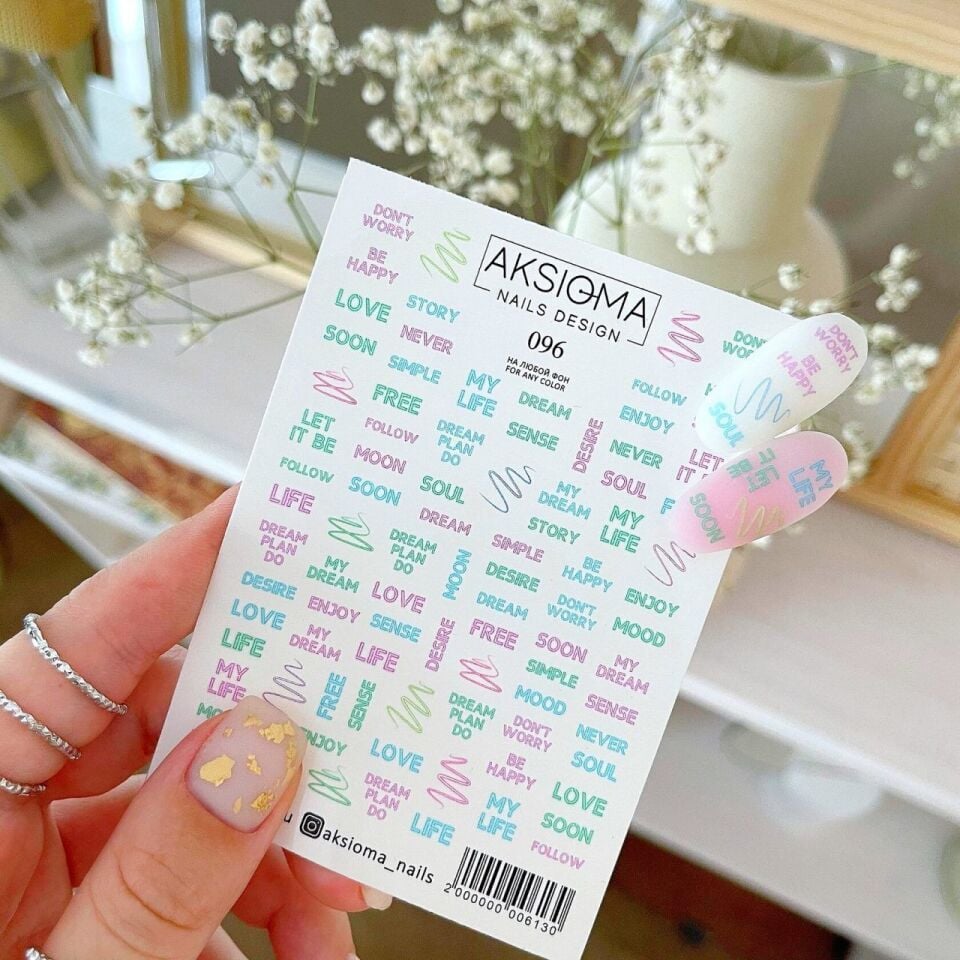 DON'T
WORRY
BE
HAPPY
AKSIOMA
NAILS DESIGN
096
НА ЛЮБОЙ ФОН
FOR ANY COLOR
LOVE
STORY
SOON
NEVER
SIMPLE
MY
LIFE
DREAM
FREE
FOLLOW
ENJOY
LET
IT BE
FOLLOW
DREAM
PLAN
DO
SENSE
DESIRE
NEVER
LET
IT
MOON
FOLLOW
SOON
SOUL
MY
DREAM
SOUL
LIFE
DREAM
STORY
MY
LIFE
DREAM
PLAN
DO
DREAM
PLAN
DO
SIMPLE
BE
HAPPY
MY
DREAM
MOON
DESIRE
ENJOY
DESIRE
LOVE
DREAM
DON'T
WORRY
MOOD
LOVE
ENJOY
SENSE
DESIRE
FREE
SOON
MY
DREAM
LIFE
MY
DREAM
LIFE
SIMPLE
MY
LIFE
FREE
SENSE
DREAM
PLAN
DO
MOOD
SENSE
DON'T
WORRY
NEVER
ENJOY
LOVE
BE
HAPPY
SOUL
DREAM
PLAN
DO
LOVE
LIFE
MY
LIFE
SOON
FOLLOW
aksioma_nails
2 000000 006130
DON'T
WORRY
BE
HAPPY
SOUL
LET
IT BE
MY
LIFE
SOON